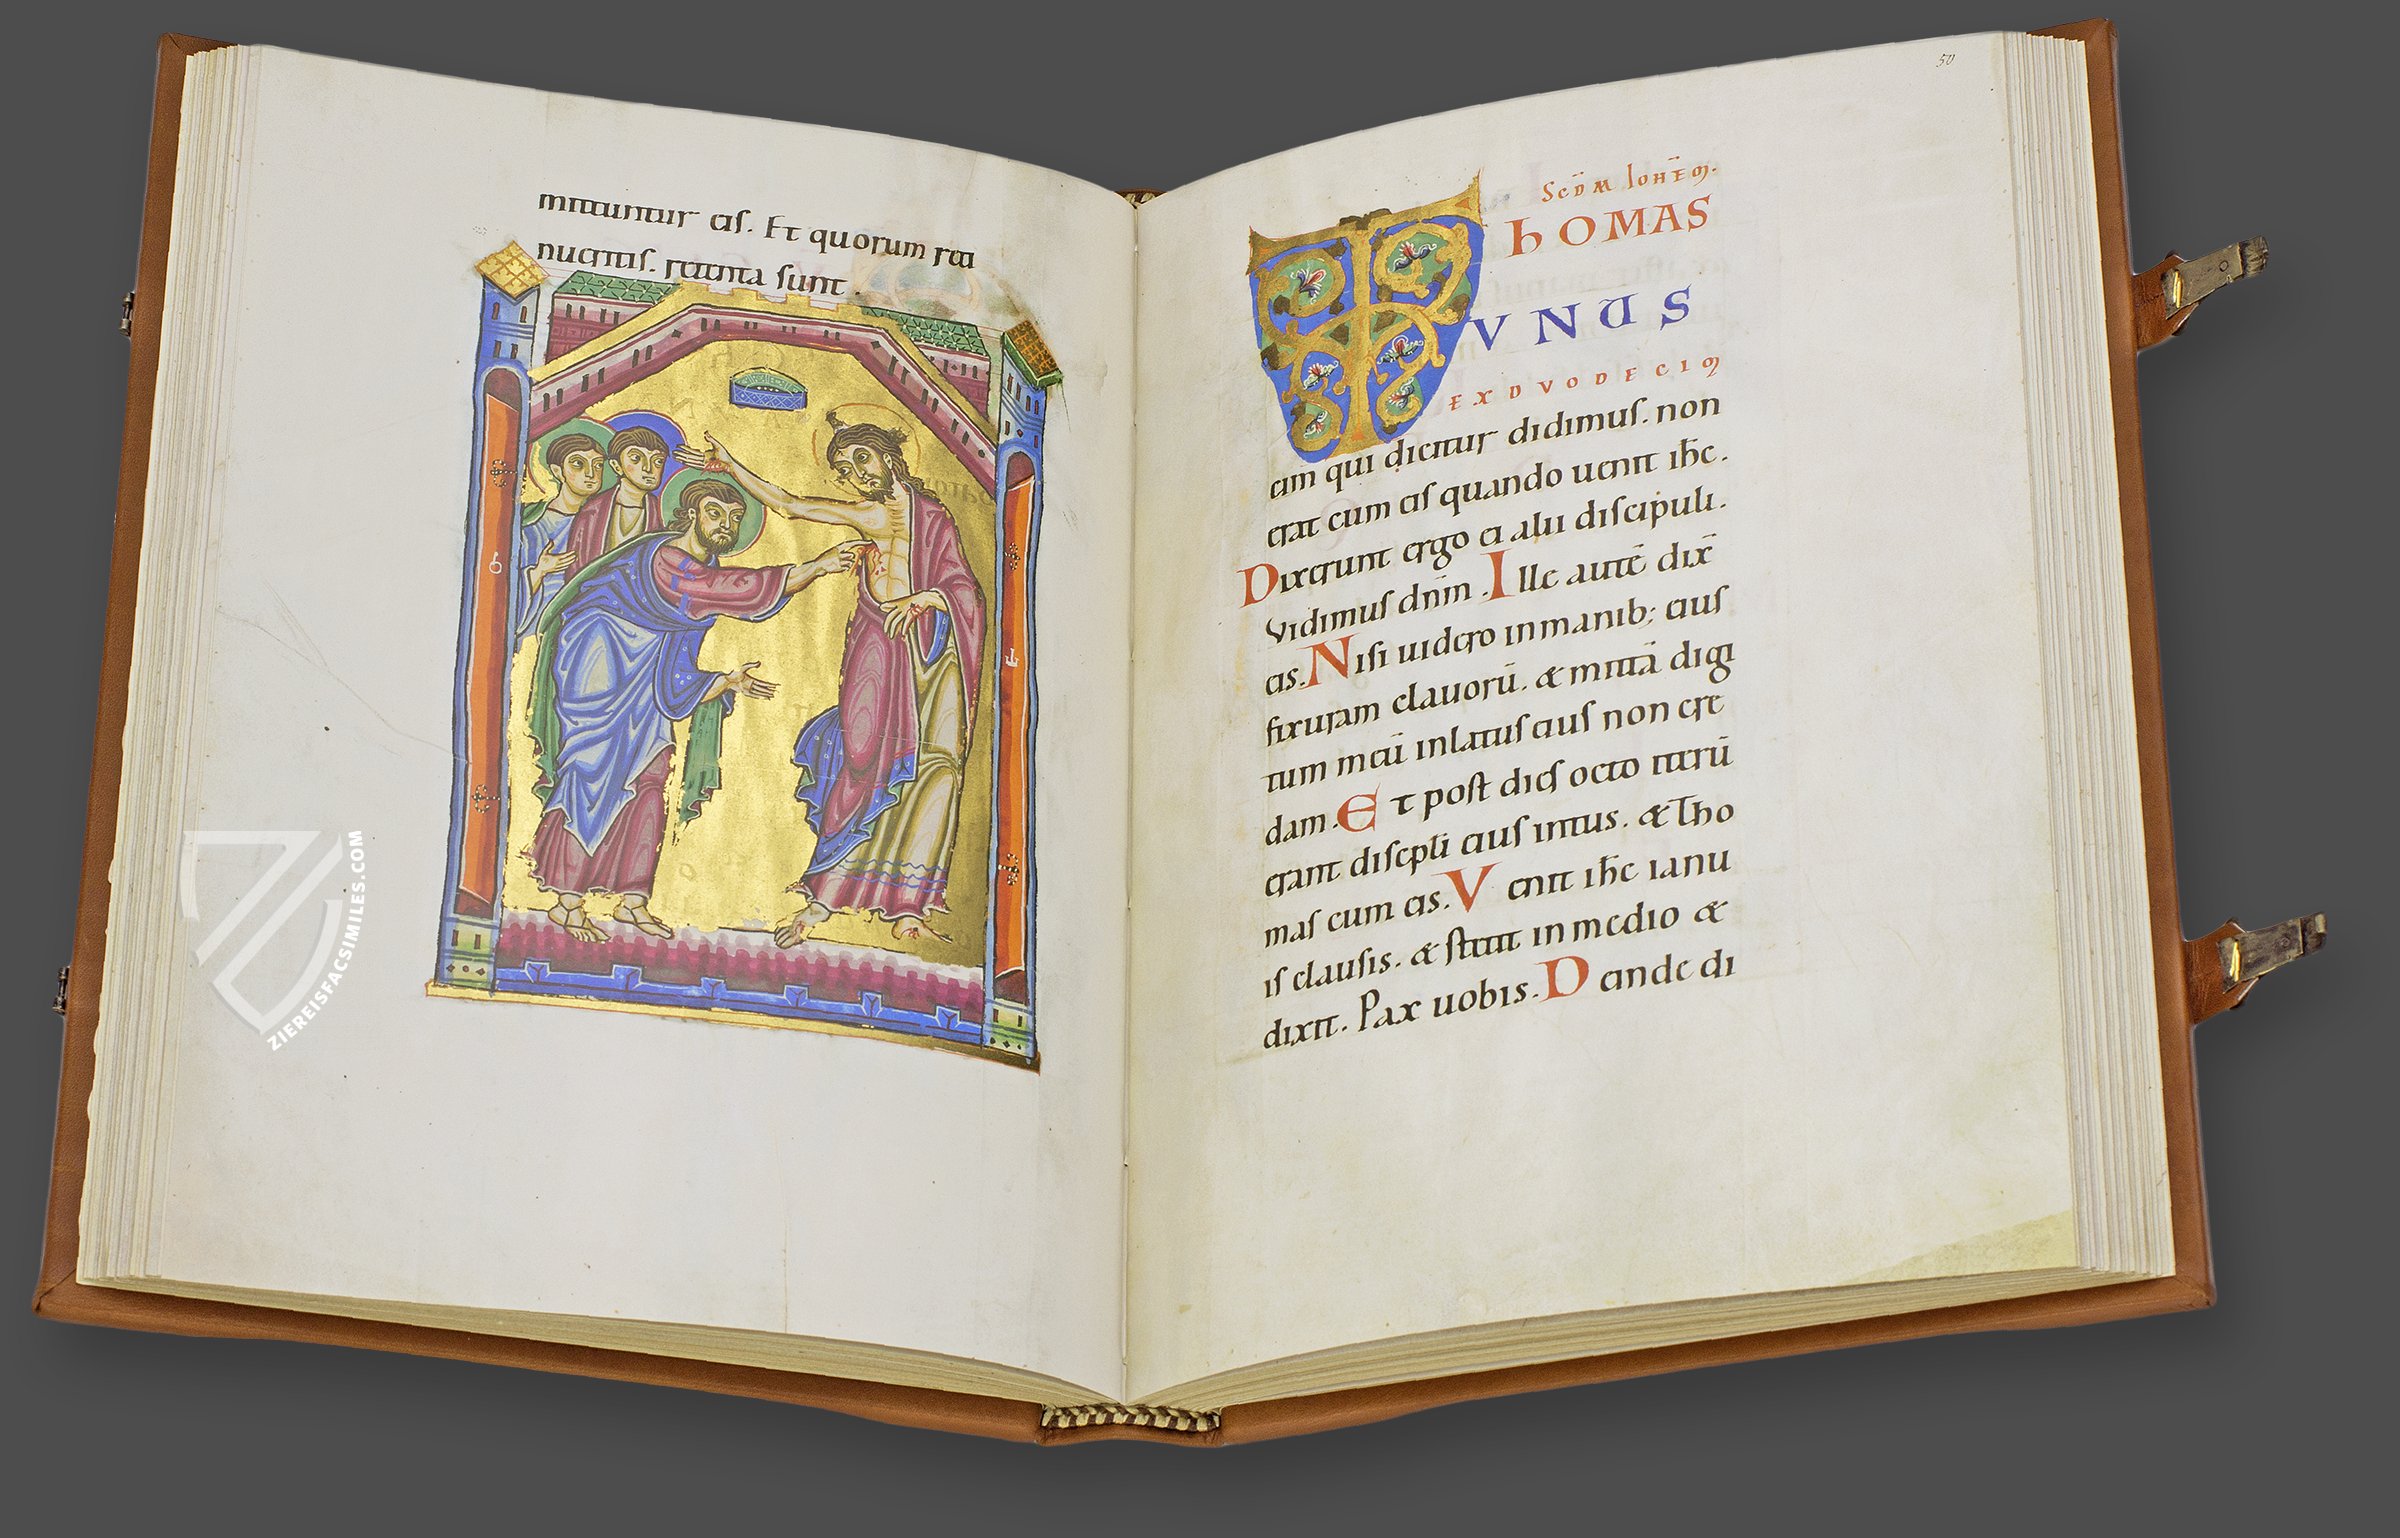 mittuntur eis. Et quorum reti
nueritis. retenta sunt.
ZIEREISFACSIMILES.COM
50
SCD̄M IOH̄EM.
THOMAS
VNUS
EX DVODECIM
cim qui dicitur didimus. non
erat cum eis quando uenit ih̄c.
Dixerunt ergo ei alii discipuli.
Vidimus dn̄m. Ille autē dix̄
eis. Nisi uidero in manib; eius
fixuram clauorū. & mittā digi
tum meū in latus eius non cre
dam. Et post dies octo iterū
erant discipli eius intus. & Tho
mas cum eis. Venit ih̄c ianu
is clausis. & stetit in medio &
dixit. Pax uobis. Deinde di